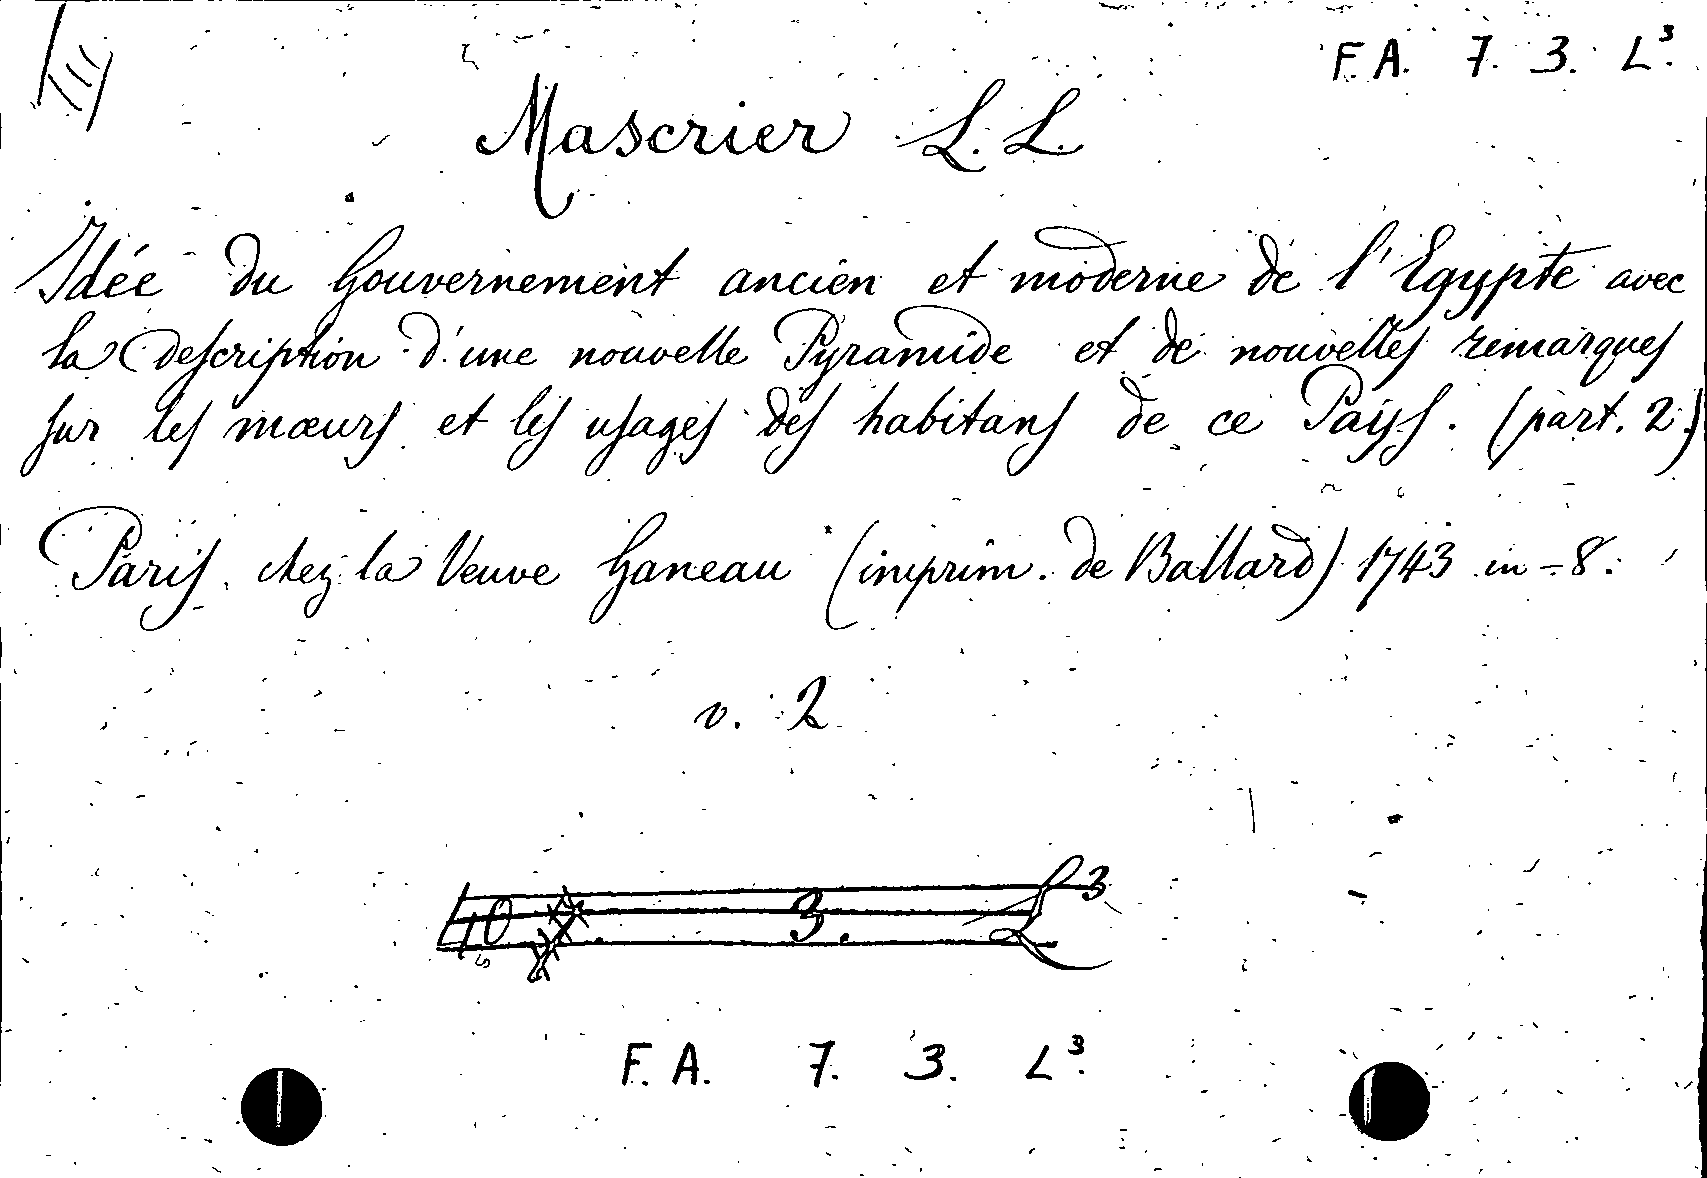 F. A. 7. 3. L³.
Mascrier L. L.
Idée du Gouvernement ancien et moderne de l'Egypte avec
la description d'une nouvelle Pyramide et de nouvelles remarques
sur les mœurs et les usages des habitans de ce Pays. (part. 2.)
Paris chez la Veuve Ganeau (imprim. de Ballard) 1743 in-8.
v. 2
3. L³
F. A. 7. 3. L³.